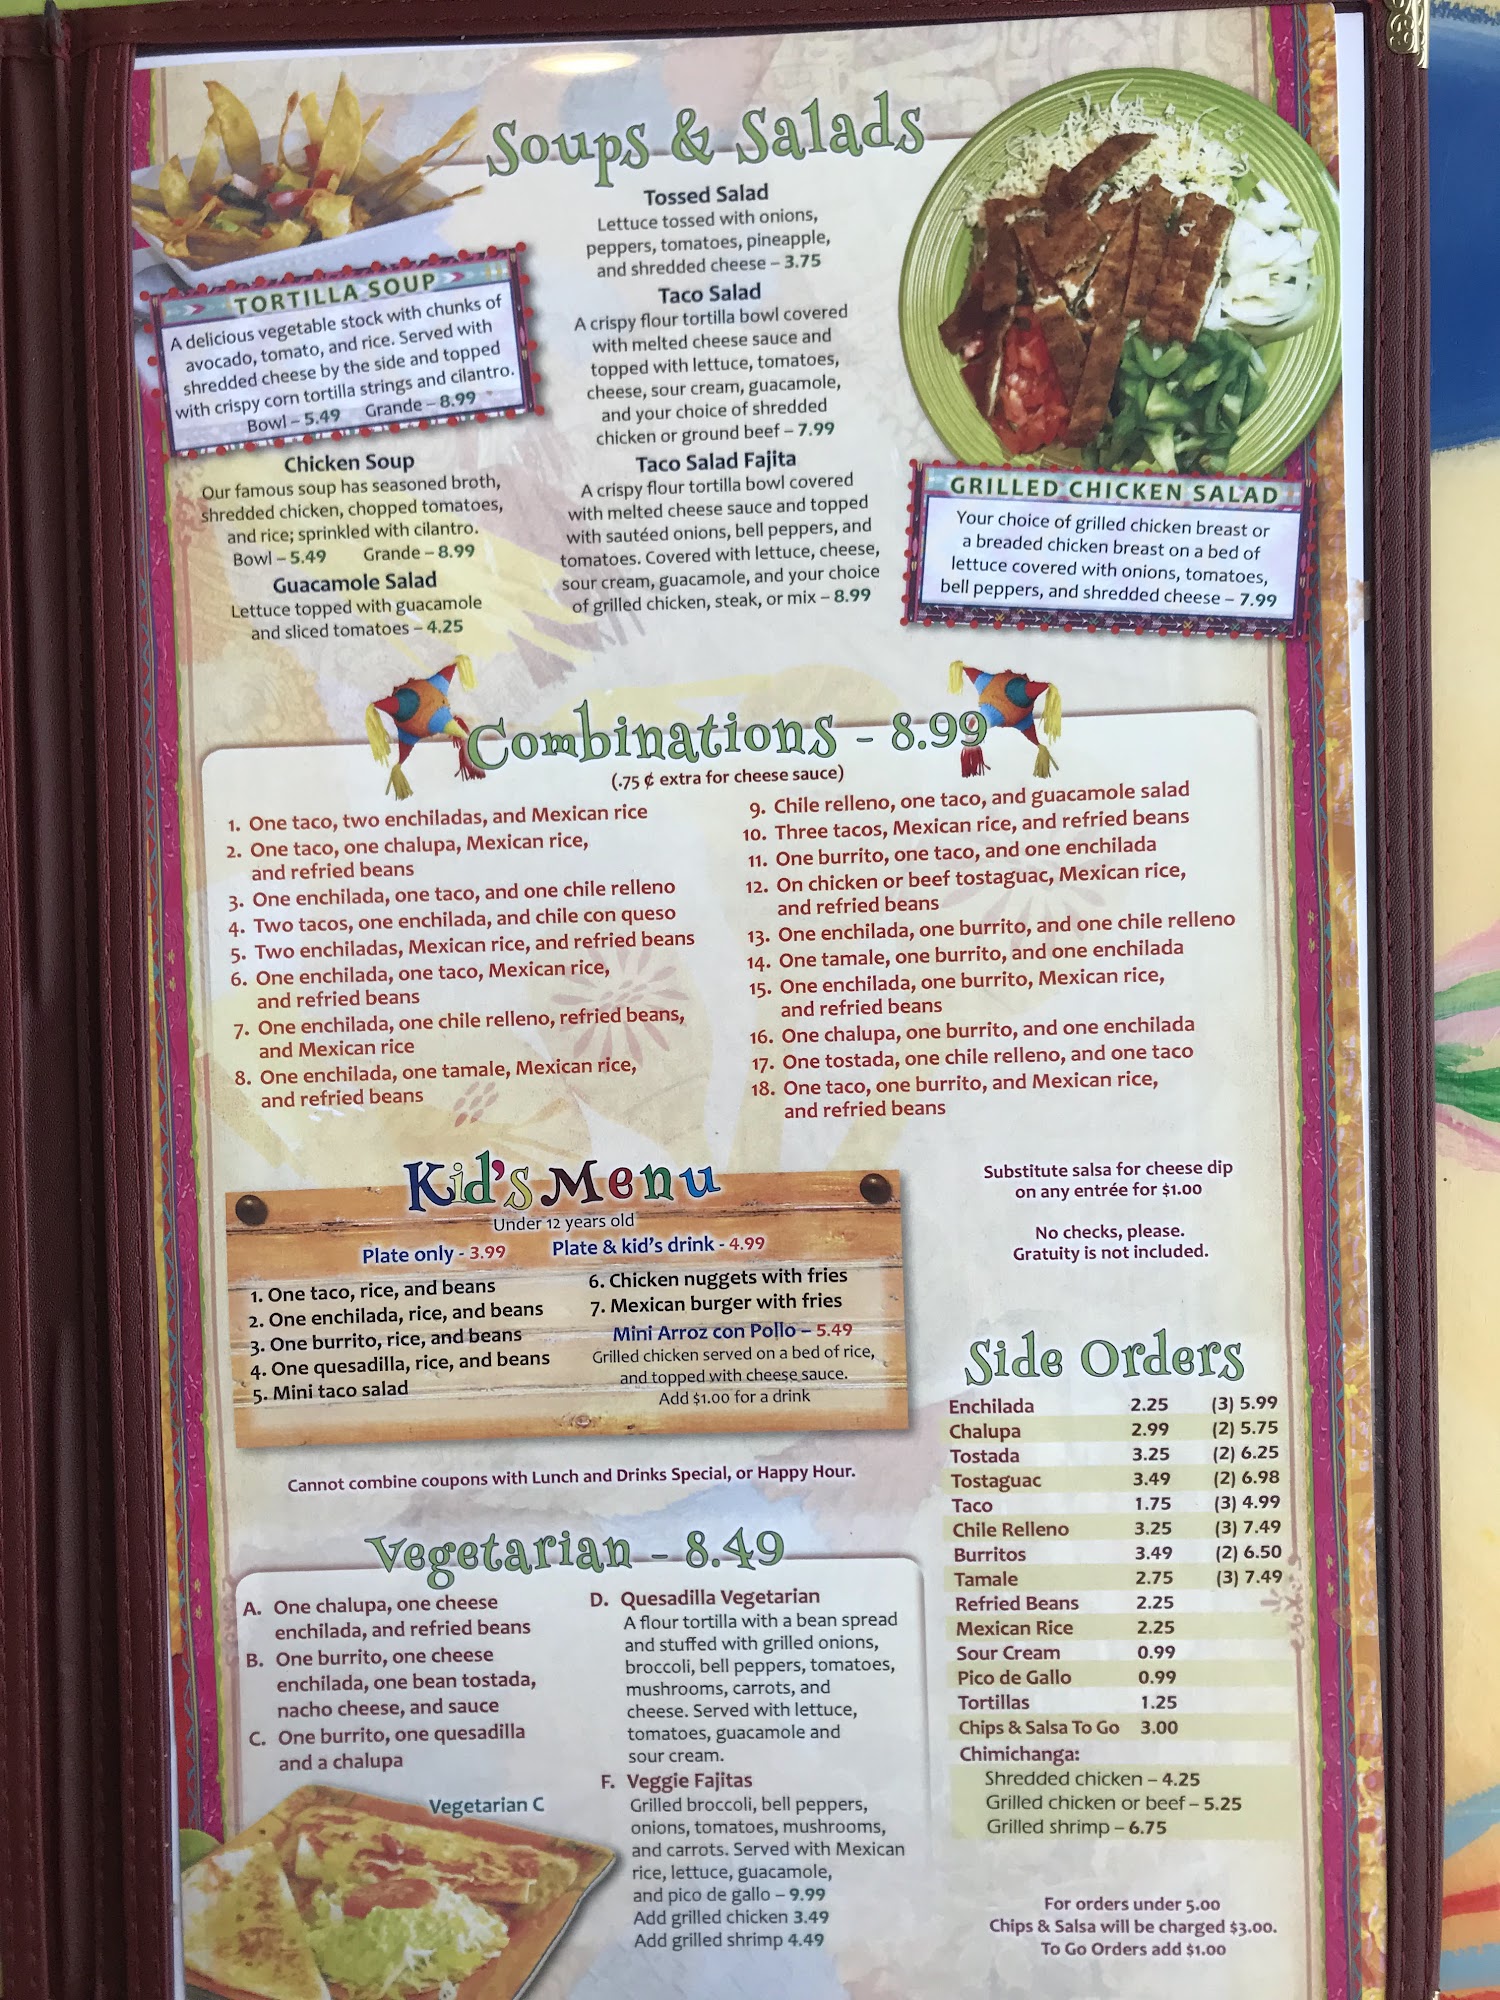 Soups & Salads
TORTILLA SOUP
A delicious vegetable stock with chunks of
avocado, tomato, and rice. Served with
shredded cheese by the side and topped
with crispy corn tortilla strings and cilantro.
Bowl – 5.49 Grande – 8.99
Chicken Soup
Our famous soup has seasoned broth,
shredded chicken, chopped tomatoes,
and rice; sprinkled with cilantro.
Bowl – 5.49 Grande – 8.99
Guacamole Salad
Lettuce topped with guacamole
and sliced tomatoes – 4.25
Tossed Salad
Lettuce tossed with onions,
peppers, tomatoes, pineapple,
and shredded cheese – 3.75
Taco Salad
A crispy flour tortilla bowl covered
with melted cheese sauce and
topped with lettuce, tomatoes,
cheese, sour cream, guacamole,
and your choice of shredded
chicken or ground beef – 7.99
Taco Salad Fajita
A crispy flour tortilla bowl covered
with melted cheese sauce and topped
with sautéed onions, bell peppers, and
tomatoes. Covered with lettuce, cheese,
sour cream, guacamole, and your choice
of grilled chicken, steak, or mix – 8.99
GRILLED CHICKEN SALAD
Your choice of grilled chicken breast or
a breaded chicken breast on a bed of
lettuce covered with onions, tomatoes,
bell peppers, and shredded cheese – 7.99
Combinations - 8.99
(.75 ¢ extra for cheese sauce)
1. One taco, two enchiladas, and Mexican rice
2. One taco, one chalupa, Mexican rice,
and refried beans
3. One enchilada, one taco, and one chile relleno
4. Two tacos, one enchilada, and chile con queso
5. Two enchiladas, Mexican rice, and refried beans
6. One enchilada, one taco, Mexican rice,
and refried beans
7. One enchilada, one chile relleno, refried beans,
and Mexican rice
8. One enchilada, one tamale, Mexican rice,
and refried beans
9. Chile relleno, one taco, and guacamole salad
10. Three tacos, Mexican rice, and refried beans
11. One burrito, one taco, and one enchilada
12. On chicken or beef tostaguac, Mexican rice,
and refried beans
13. One enchilada, one burrito, and one chile relleno
14. One tamale, one burrito, and one enchilada
15. One enchilada, one burrito, Mexican rice,
and refried beans
16. One chalupa, one burrito, and one enchilada
17. One tostada, one chile relleno, and one taco
18. One taco, one burrito, and Mexican rice,
and refried beans
Kid's Menu
Under 12 years old
Plate only - 3.99 Plate & kid's drink - 4.99
1. One taco, rice, and beans
2. One enchilada, rice, and beans
3. One burrito, rice, and beans
4. One quesadilla, rice, and beans
5. Mini taco salad
6. Chicken nuggets with fries
7. Mexican burger with fries
Mini Arroz con Pollo – 5.49
Grilled chicken served on a bed of rice,
and topped with cheese sauce.
Add $1.00 for a drink
Cannot combine coupons with Lunch and Drinks Special, or Happy Hour.
Substitute salsa for cheese dip
on any entrée for $1.00
No checks, please.
Gratuity is not included.
Vegetarian - 8.49
A. One chalupa, one cheese
enchilada, and refried beans
B. One burrito, one cheese
enchilada, one bean tostada,
nacho cheese, and sauce
C. One burrito, one quesadilla
and a chalupa
Vegetarian C
D. Quesadilla Vegetarian
A flour tortilla with a bean spread
and stuffed with grilled onions,
broccoli, bell peppers, tomatoes,
mushrooms, carrots, and
cheese. Served with lettuce,
tomatoes, guacamole and
sour cream.
F. Veggie Fajitas
Grilled broccoli, bell peppers,
onions, tomatoes, mushrooms,
and carrots. Served with Mexican
rice, lettuce, guacamole,
and pico de gallo – 9.99
Add grilled chicken 3.49
Add grilled shrimp 4.49
Side Orders
Enchilada 2.25 (3) 5.99
Chalupa 2.99 (2) 5.75
Tostada 3.25 (2) 6.25
Tostaguac 3.49 (2) 6.98
Taco 1.75 (3) 4.99
Chile Relleno 3.25 (3) 7.49
Burritos 3.49 (2) 6.50
Tamale 2.75 (3) 7.49
Refried Beans 2.25
Mexican Rice 2.25
Sour Cream 0.99
Pico de Gallo 0.99
Tortillas 1.25
Chips & Salsa To Go 3.00
Chimichanga:
Shredded chicken – 4.25
Grilled chicken or beef – 5.25
Grilled shrimp – 6.75
For orders under 5.00
Chips & Salsa will be charged $3.00.
To Go Orders add $1.00